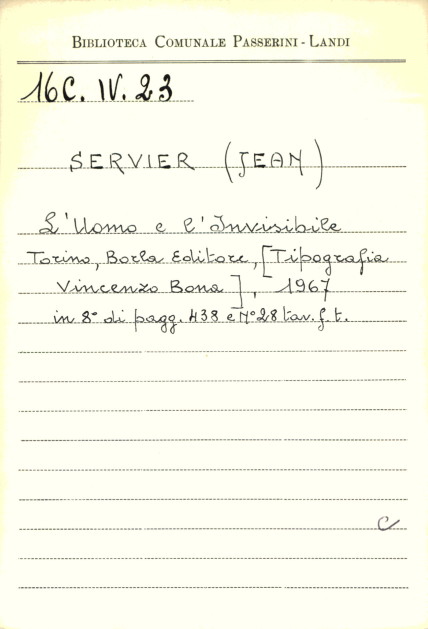 BIBLIOTECA COMUNALE PASSERINI-LANDI
16C. IV. 23
SERVIER (JEAN)
L'Uomo e l'Invisibile
Torino, Borla Editore, [Tipografia
Vincenzo Bona], 1967
in 8° di pagg. 438 e N° 28 tav. f. t.
C